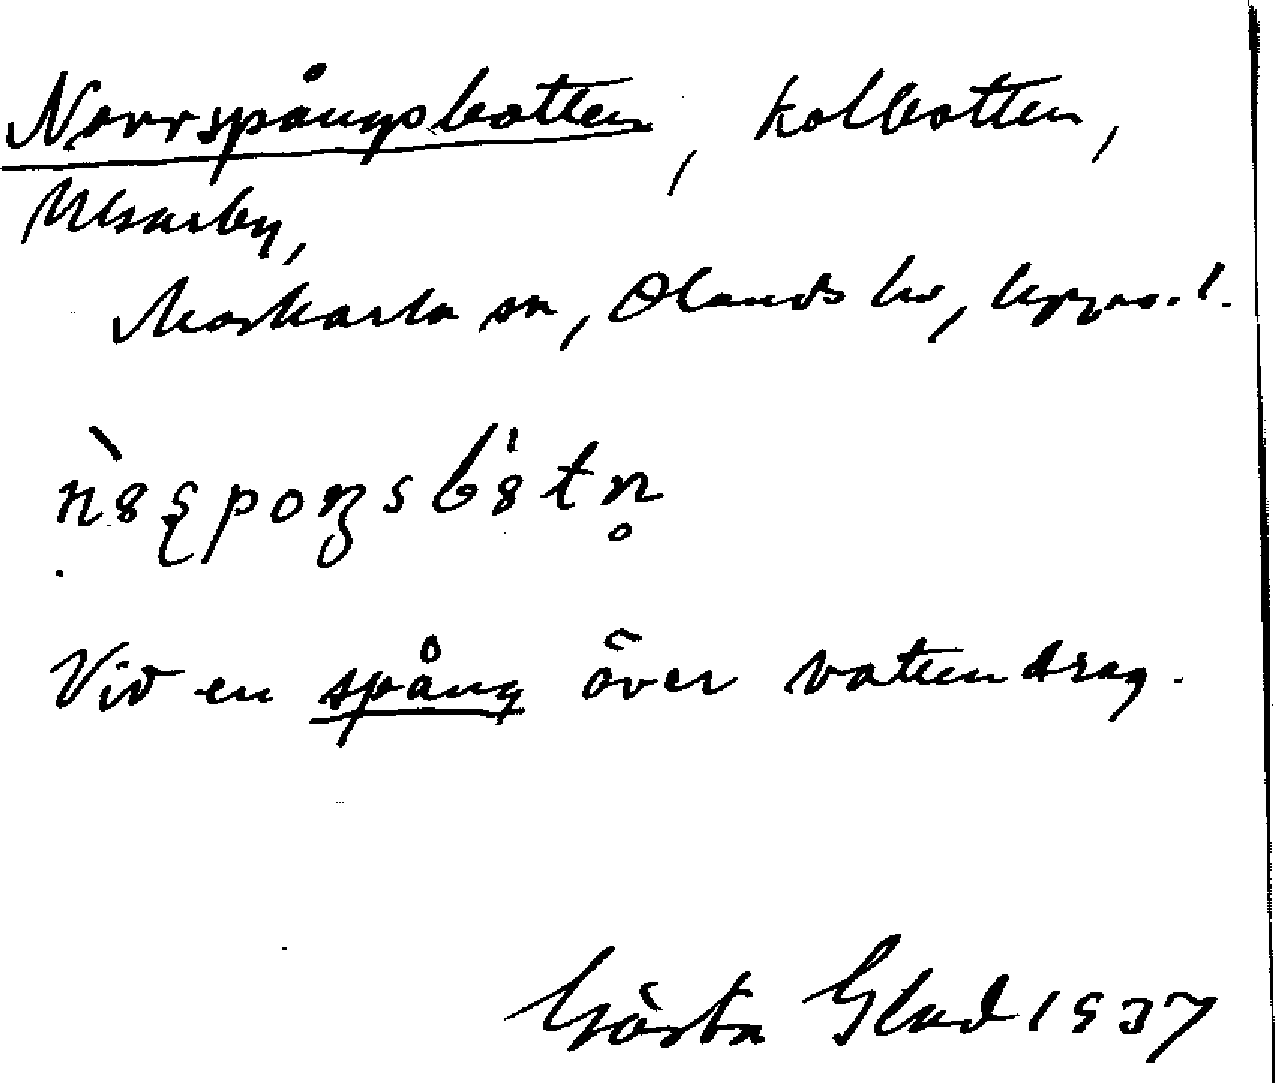 Norrspångsbotten, kolbotten,
Ulvsarby,
Morkarla sn, Olands hd, Upps. l.
Vid en spång över vattendrag.
Gösta Glad 1937